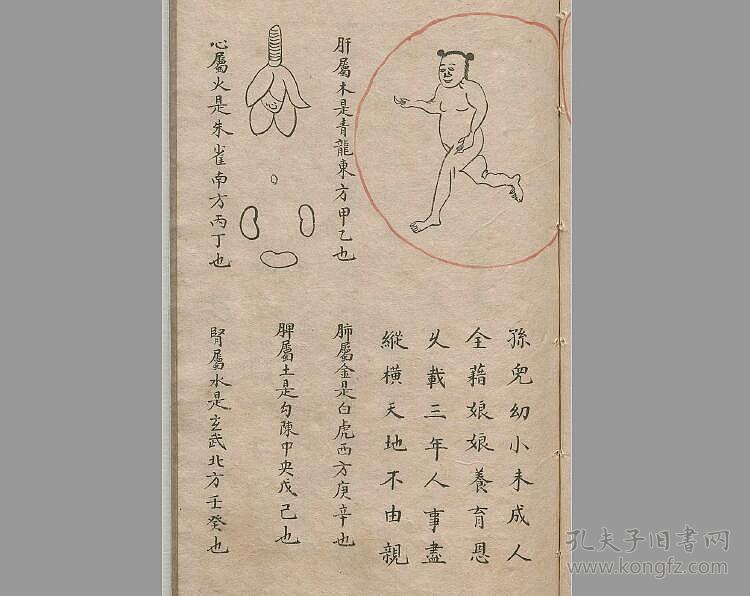 孫兒幼小未成人
全藉娘娘養育恩
乆載三年人事盡
縱橫天地不由親
肝屬木是青龍東方甲乙也
肺屬金是白虎西方庚辛也
脾屬土是勾陳中央戊己也
心屬火是朱雀南方丙丁也
腎屬水是玄武北方壬癸也
孔夫子旧书网
www.kongfz.com